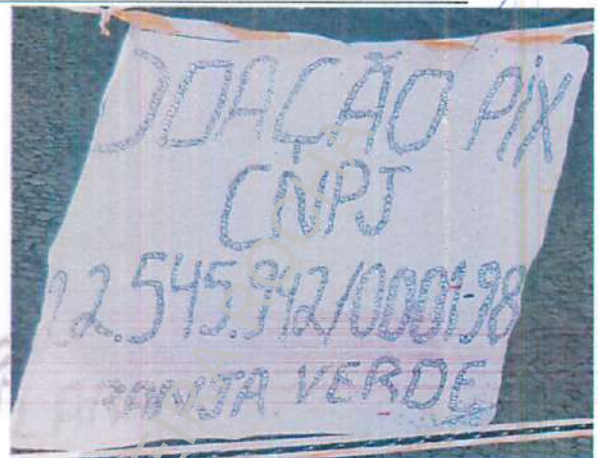 DOAÇÃO PIX
CNPJ
22.545.942/0001-98
GRANJA VERDE